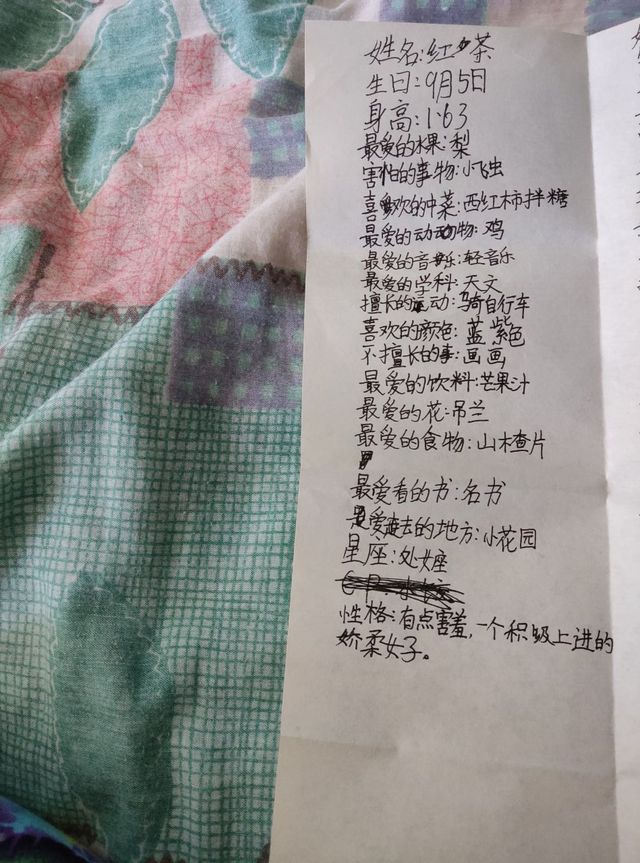 姓名:红茶
生日:9月5日
身高:1.63
最爱的水果:梨
害怕的事物:小飞虫
喜欢的中菜:西红柿拌糖
最爱的动物:鸡
最爱的音乐:轻音乐
最爱的学科:天文
擅长的运动:骑自行车
喜欢的颜色:蓝紫色
不擅长的事:画画
最爱的饮料:芒果汁
最爱的花:吊兰
最爱的食物:山楂片
最爱看的书:名书
最爱去的地方:小花园
星座:处女座
性格:有点害羞,一个积级上进的
娇柔女子。